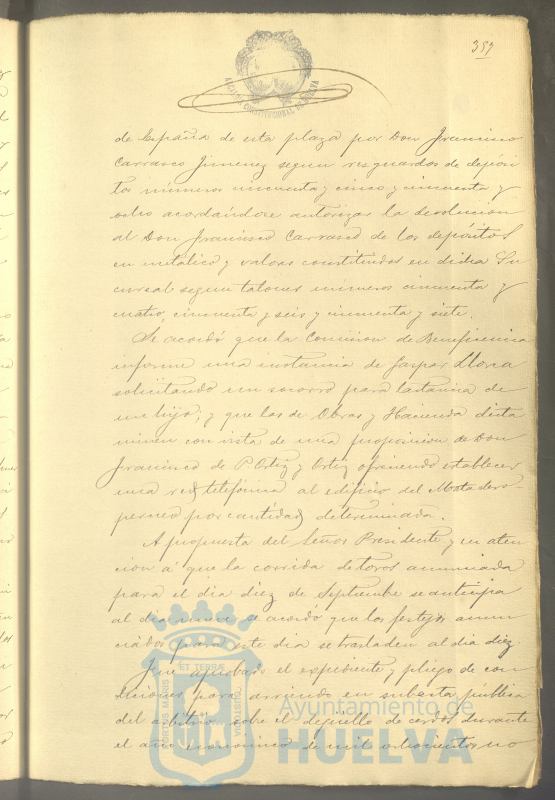 357
de España de esta plaza por Don Francisco
Carrasco Jimenez segun resguardos de depósi
tos números cincuenta y cinco y cincuenta y
ocho acordándose autorizar la devolucion
al Don Francisco Carrasco de los depósitos
en metálico y valores constituidos en dicha Su
cursal segun talones números cincuenta y
cuatro, cincuenta y seis y cincuenta y siete.
Se acordó que la Comision de Beneficencia
informe una instancia de Gaspar Llorca
solicitando un socorro para lactancia de
un hijo; y que las de Obras y Hacienda dicta
minen con vista de una proposicion de Don
Francisco de P. Ortiz y Ortiz ofreciendo establecer
una red telefónica al edificio del Matadero
por cantidad determinada.
A propuesta del Señor Presidente y en aten
cion á que la corrida de toros anunciada
para el dia diez de Septiembre se anticipa
al dia nueve se acordó que los festejos anun
ciados para este dia se trasladen al dia diez.
Fué aprobado el expediente y pliego de con
diciones para arriendo en subasta pública
del arbitrio sobre el degüello de cerdos durante
el año económico de mil ochocientos no
ET TERRÆ
PORTUS MARIS
CUSTODIA
Ayuntamiento de
HUELVA